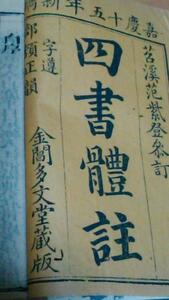 嘉慶十五年新
苕溪范紫登參訂
四書體註
字遵
部頒正韻
金閶多文堂藏版